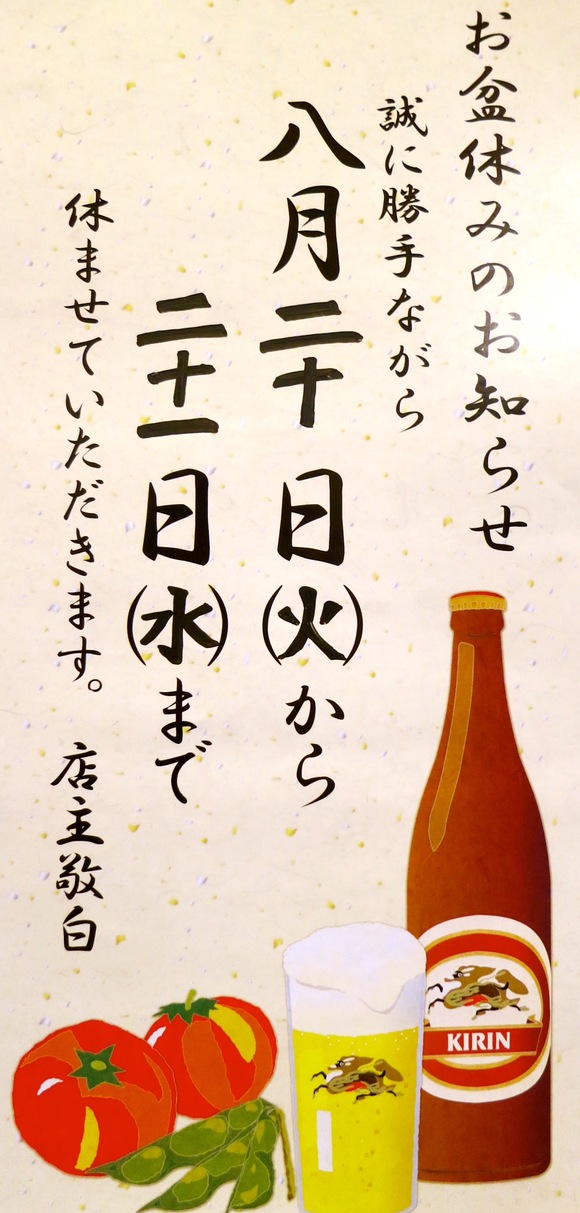 お盆休みのお知らせ
誠に勝手ながら
八月二十日(火)から
二十一日(水)まで
休ませていただきます。 店主敬白
KIRIN